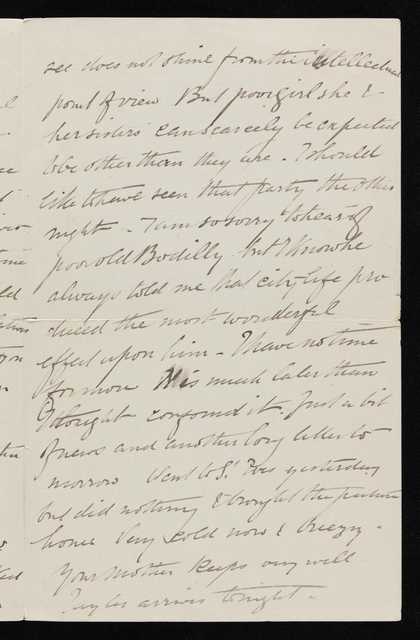 see does not shine from the intellectual
point of view But poor girl she &
her sisters can scarcely be expected
to be other than they are - I should
like to have seen that party the other
night - I am so sorry to hear of
poor old Bodilly but I know he
always told me that city life pro
duced the most wonderful
effect upon him - I have no time
for more It is much later than
I thought confound it. Just a bit
of news and another long letter to
morrow Went to St Ives yesterday
but did nothing & brought the picture
home Very cold now & breezy -
Your Mother keeps very well
Tayler arrives tonight -